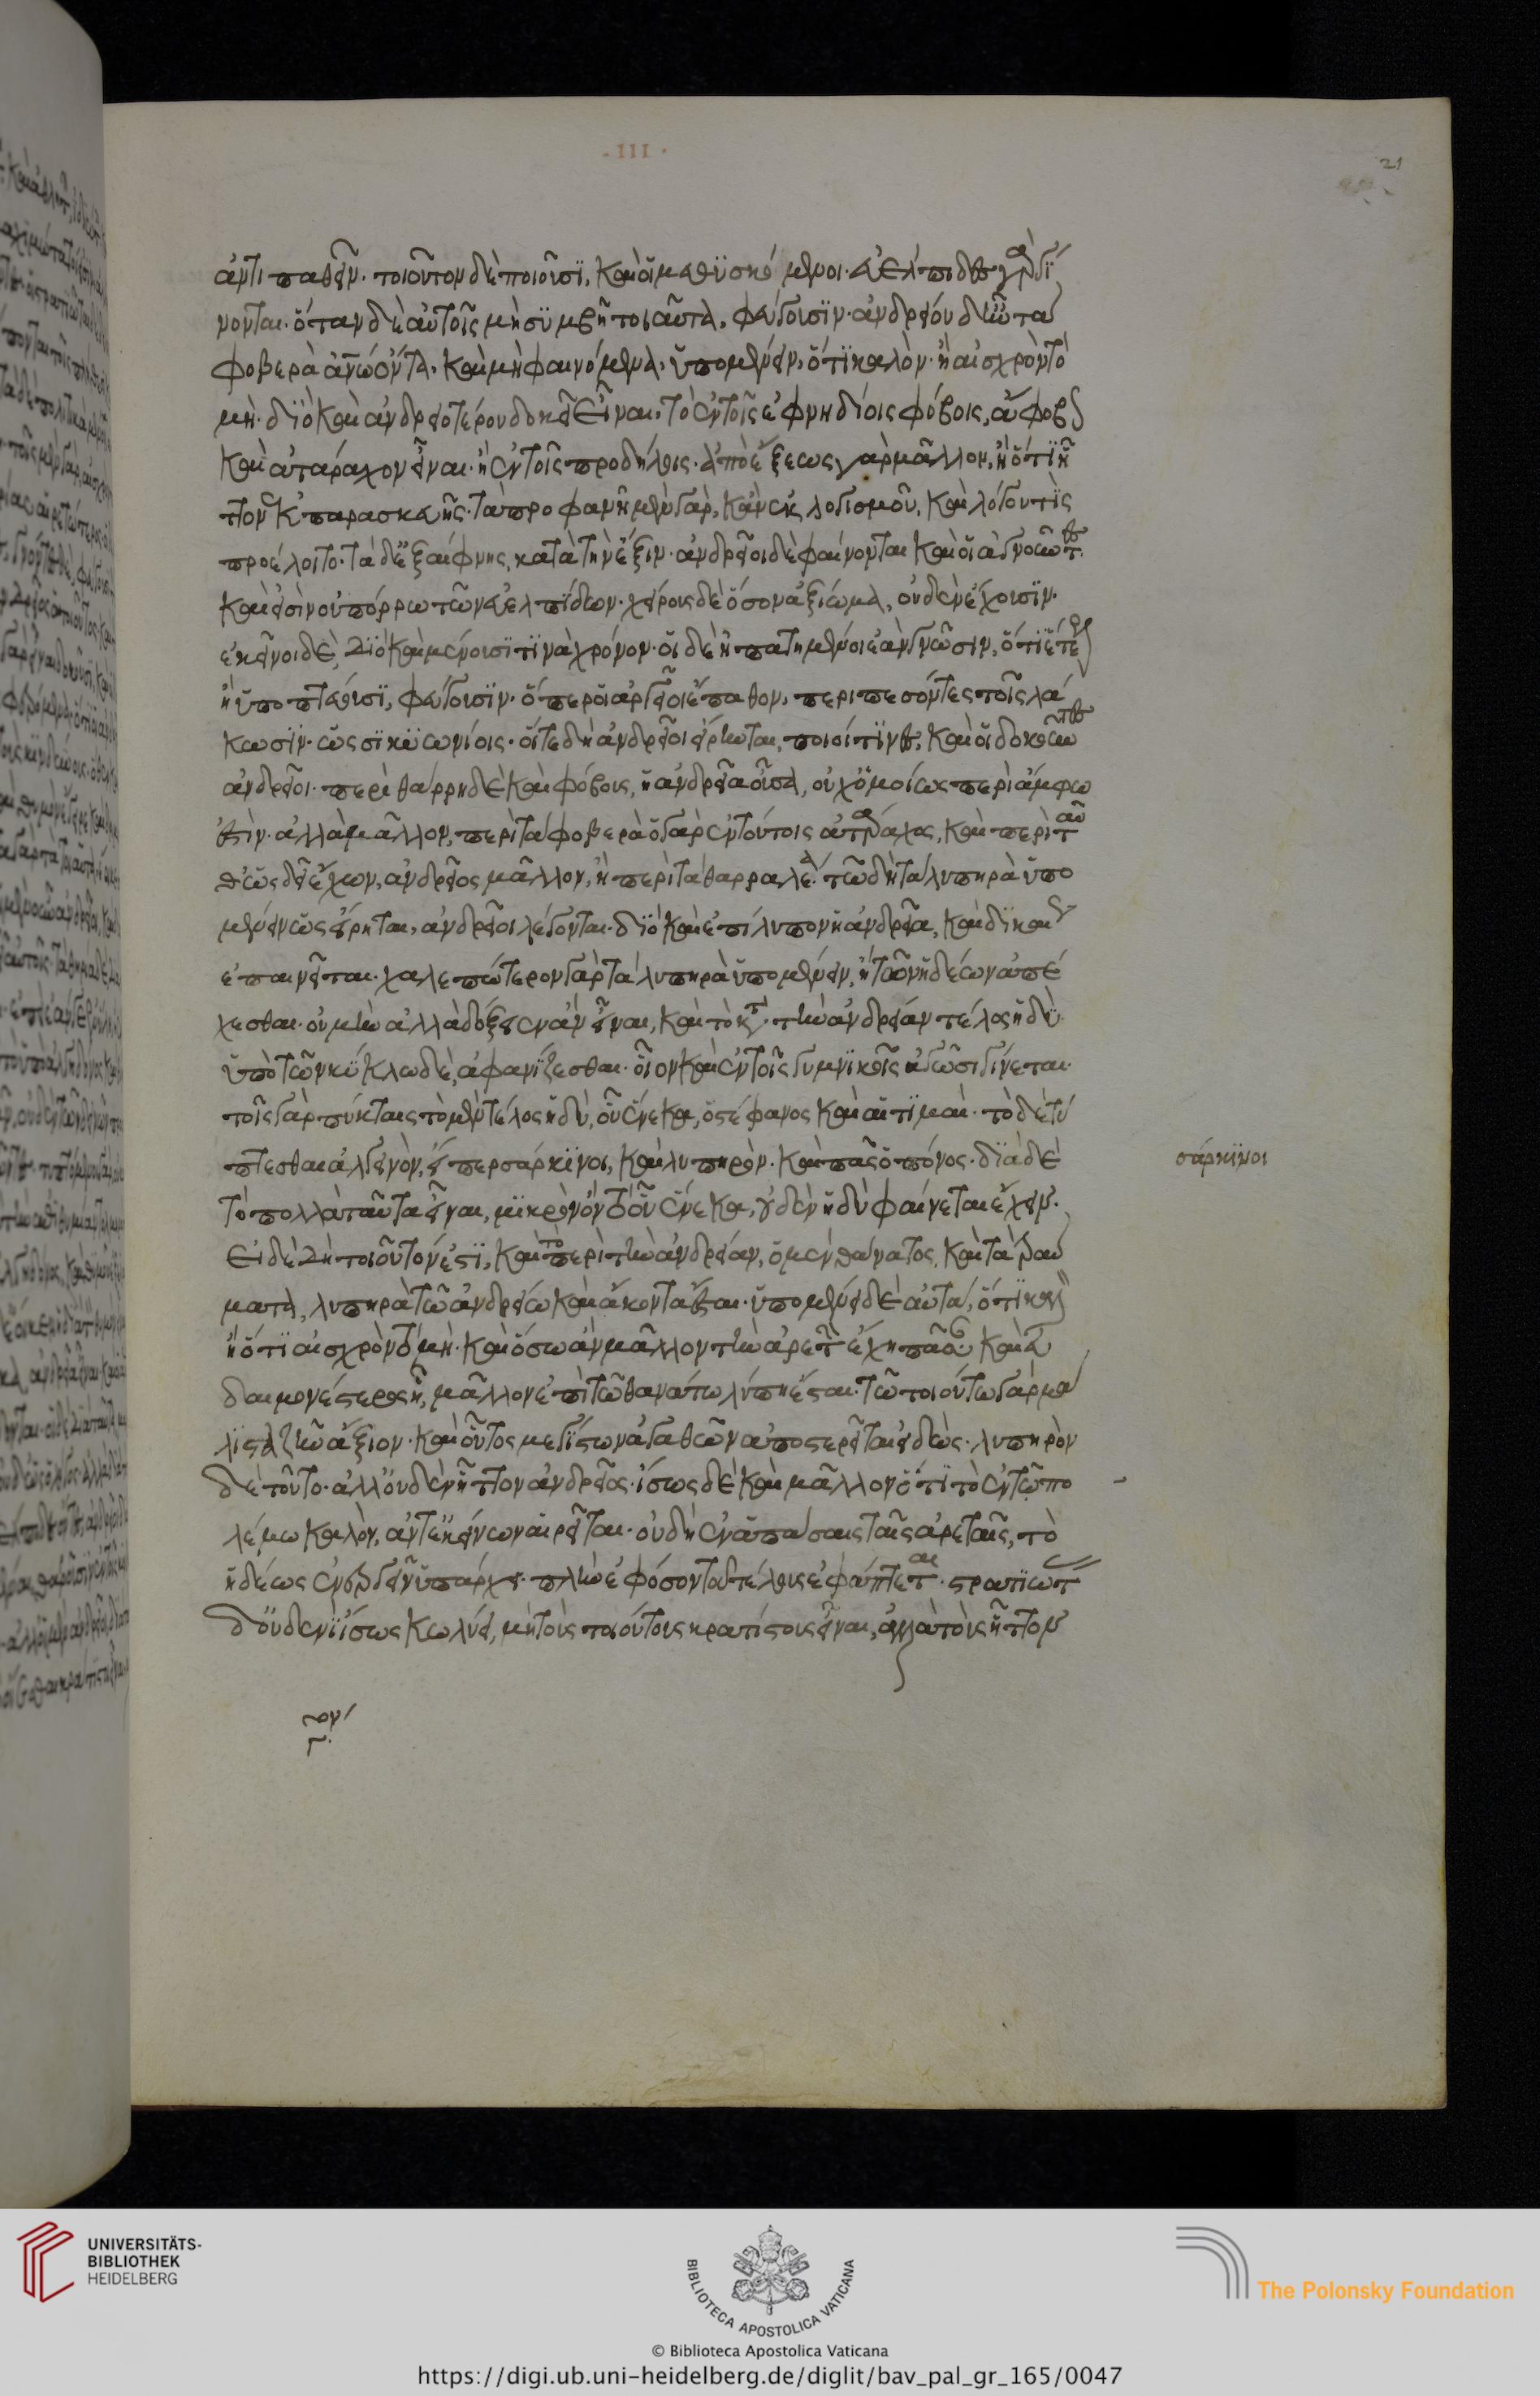 - III ·
21
ἀντι παθεῖν· τοιοῦτον δὲ ποιοῦσϊ, καὶ οἱ μεθϋσκό μενοι· εὐέλπιδες γὰρ γί
νονται· ὅταν δὲ αὐτοῖς μὴ σϋμβῆ τοιαῦτα, φεύγουσϊν· ἀνδρείου δ' ἦν τὰ
φοβερὰ ἀνω ὄντα, καὶ μὴ φαινόμενα, ὑπομένειν, ὅτϊ καλὸν· ἢ αἰσχρὸν τὸ
μὴ· δϊὸ καὶ ἀνδρειοτέρου δοκεῖ εἶναι, τὸ ἐν τοῖς ἐφνηδίοις φόβοις, ἄφοβον
καὶ ἀτάραχον εἶναι· ἢ ἐν τοῖς προδήλοις· ἀπὸ ἕξεως γὰρ μᾶλλον, ἢ ὅτϊ ἧ
ττον ἐκ παρασκευῆς· τὰ προφανῆ μὲν γὰρ, κἂν ἐκ λογισμοῦ, καὶ λόγου τὶς
προέλοιτο· τὰ δ' ἐξαίφνης, κατὰ τὴν ἕξιν· ἀνδρεῖοι δὲ φαίνονται καὶ οἱ ἀγνοοῦντες·
καὶ εἰσὶν οὐ πόρρω τῶν εὐελπίδων· χείρους δὲ ὅσον ἀξίωμα, οὐδὲν ἔχουσϊν·
ἐκεῖνοι δὲ, διὸ καὶ μένουσϊ τϊνὰ χρόνον· οἱ δὲ ἠπατημένοι ἐὰν γνῶσιν, ὅτϊ ἕτερον
ἢ ὑποπτεύουσϊ, φεύγουσϊν· ὅπερ οἱ ἀργεῖοι ἔπαθον, περιπεσόντες τοῖς λά
κωσϊν· ὡς σϊκϋωνίοις· οἵ τε δὴ ἀνδρεῖοι εἴρηνται, ποῖοί τϊνες, καὶ οἱ δοκοῦντες
ἀνδρεῖοι· περὶ θάρρη δὲ καὶ φόβους, ἡ ἀνδρεία οὖσα, οὐχ ὁμοίως περὶ ἄμφω
ἐστὶν· ἀλλὰ μᾶλλον, περὶ τὰ φοβερὰ ὁ γὰρ ἐν τούτοις ἀτάραχος, καὶ περὶ ταῦ
θ' ὡς δεῖ ἔχων, ἀνδρεῖος μᾶλλον, ἢ περὶ τὰ θαρραλέα· τῶ δὴ τὰ λυπηρὰ ὑπο
μένειν ὡς εἴρηται, ἀνδρεῖοι λέγονται· δϊὸ καὶ ἐπίλυπον ἡ ἀνδρεία, καὶ δϊκαίως
ἐπαινεῖται· χαλεπώτερον γὰρ τὰ λυπηρὰ ὑπομένειν, ἢ τῶν ἡδέων ἀπέ
χεσθαι· οὐ μὴν ἀλλὰ δόξειεν ἂν εἶναι, καὶ τὸ κατὰ τὴν ἀνδρείαν τέλος ἡδϋ·
ὑπὸ τῶν κϋκλω δὲ, ἀφανϊζεσθαι· οἷον καὶ ἐν τοῖς γυμνϊκοῖς ἀγῶσι γίνεται·
τοῖς γὰρ πύκταις τὸ μὲν τέλος ἡδὺ, οὗ ἕνεκα, ὁ στέφανος καὶ αἱ τϊμαὶ· τὸ δὲ τύ
πτεσθαι ἀλγεινὸν, εἴπερ σάρκϊνοι, καὶ λυπηρὸν· καὶ πᾶς ὁ πόνος· δϊὰ δὲ
τὸ πολλὰ ταῦτα εἶναι, μϊκρὸν ὂν τὸ οὗ ἕνεκα, οὐδὲν ἡδὺ φαίνεται ἔχειν·
εἰ δὲ δὴ τοιοῦτόν ἐστϊ, καὶ τὸ περὶ τὴν ἀνδρείαν, ὁ μὲν θάνατος, καὶ τὰ τραύ
ματα, λυπηρὰ τῶ ἀνδρείω καὶ ἄκοντι ἔσται· ὑπομένει δὲ αὐτὰ, ὅτϊ καλὸν
ἢ ὅτϊ αἰσχρὸν τὸ μὴ· καὶ ὅσω ἂν μᾶλλον τὴν ἀρετὴν ἔχη πᾶσαν καὶ εὐ
δαιμονέστερος ἦ, μᾶλλον ἐπὶ τῶ θανάτω λύπη ἔσται· τῶ τοιούτω γὰρ μά
λϊστα ζῆν ἄξιον· καὶ οὗτος μεγϊστων ἀγαθῶν ἀποστερεῖται εἰδὼς· λυπηρὸν
δὲ τοῦτο· ἀλλ' οὐδὲν ἧττον ἀνδρεῖος· ἴσως δὲ καὶ μᾶλλον ὅτϊ τὸ ἐν τῶ πο
λέμω καλὸν, ἀντ' ἐκείνων αἱρεῖται· οὐ δὴ ἐν ἁπάσαις ταῖς ἀρεταῖς, τὸ
ἡδέως ἐνεργεῖν ὑπάρχει· πλὴν ἐφόσον τοῦ τέλους ἐφάπτεται· στρατϊώτας
δ' οὐδὲν ἴσως κωλύει, μὴ τοὺς τοιούτους κρατίστους εἶναι, ἀλλὰ τοὺς ἧττον
σάρκϊνοι
UNIVERSITÄTS-
BIBLIOTHEK
HEIDELBERG
BIBLIOTECA APOSTOLICA VATICANA
The Polonsky Foundation
© Biblioteca Apostolica Vaticana
https://digi.ub.uni-heidelberg.de/diglit/bav_pal_gr_165/0047